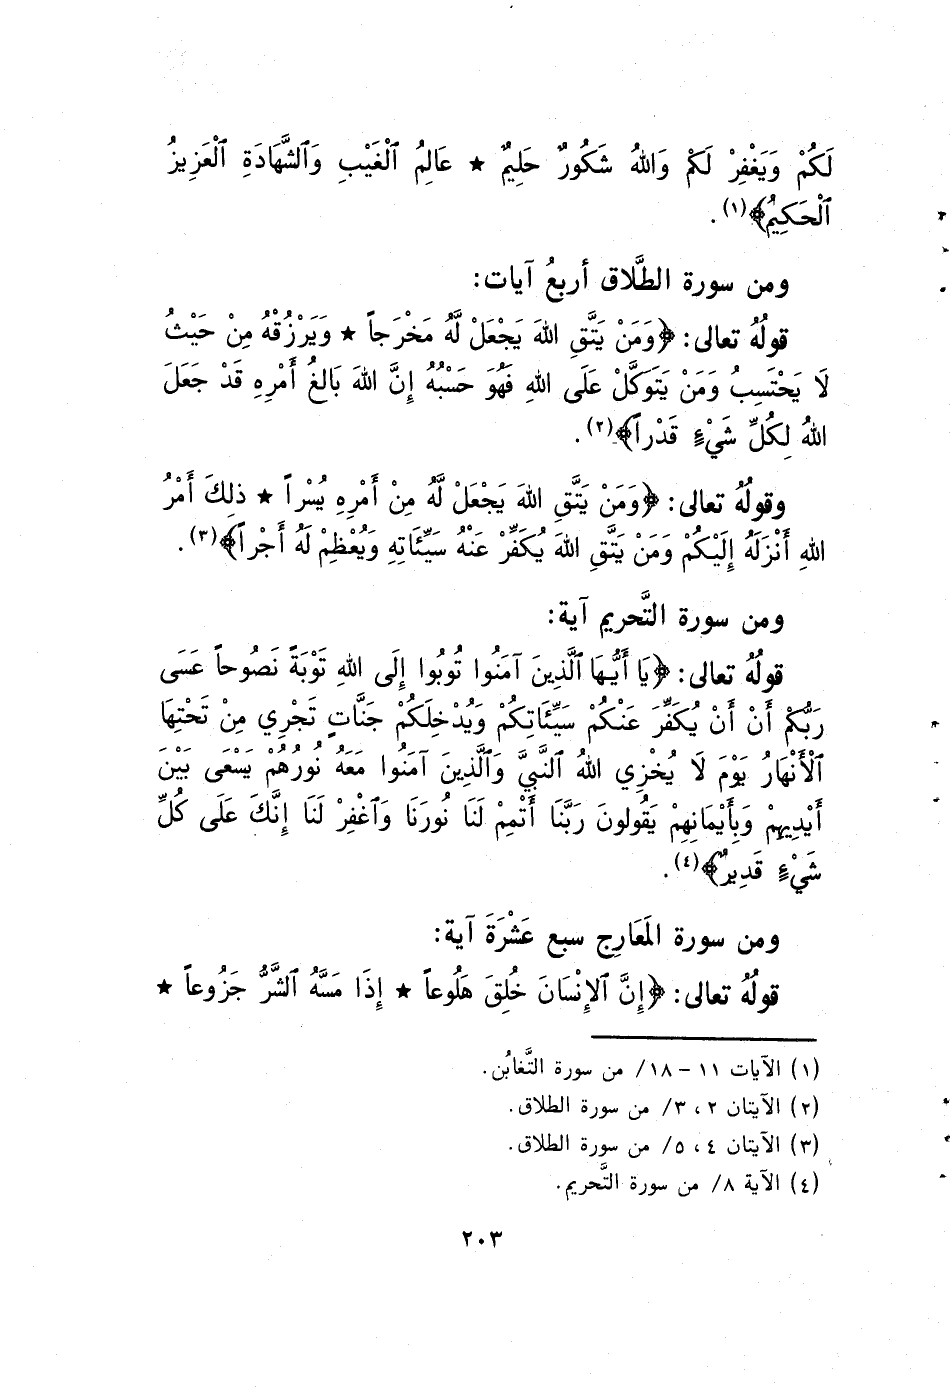 لَكُمْ وَيَغْفِرْ لَكُمْ وَاللهُ شَكُورٌ حَلِيمٌ ★ عَالِمُ ٱلْغَيْبِ وَٱلشَّهَادَةِ ٱلْعَزِيزُ
ٱلْحَكِيمُ﴾(١).
ومن سورة الطَّلاق أربعُ آيات:
قولُهُ تعالى: ﴿وَمَنْ يَتَّقِ اللهَ يَجْعَلْ لَّهُ مَخْرَجاً ★ وَيَرْزُقْهُ مِنْ حَيْثُ
لَا يَحْتَسِبُ وَمَنْ يَتَوَكَّلْ عَلَى اللهِ فَهُوَ حَسْبُهُ إِنَّ اللهَ بَالِغُ أَمْرِهِ قَدْ جَعَلَ
اللهُ لِكُلِّ شَيْءٍ قَدْراً﴾(٢).
وقولُهُ تعالى: ﴿وَمَنْ يَتَّقِ اللهَ يَجْعَلْ لَّهُ مِنْ أَمْرِهِ يُسْراً ★ ذلِكَ أَمْرُ
اللهِ أَنْزَلَهُ إِلَيْكُمْ وَمَنْ يَتَّقِ اللهَ يُكَفِّرْ عَنْهُ سَيِّئَاتِهِ وَيُعْظِمْ لَهُ أَجْراً﴾(٣).
ومن سورة التَّحريم آية:
قولُهُ تعالى: ﴿يَا أَيُّهَا ٱلَّذِينَ آمَنُوا تُوبُوا إِلَى اللهِ تَوْبَةً نَصُوحاً عَسَى
رَبُّكُمْ أَنْ أَنْ يُكَفِّرَ عَنْكُمْ سَيِّئَاتِكُمْ وَيُدْخِلَكُمْ جَنَّاتٍ تَجْرِي مِنْ تَحْتِهَا
ٱلْأَنْهَارُ يَوْمَ لَا يُخْزِي اللهُ ٱلنَّبِيَّ وَٱلَّذِينَ آمَنُوا مَعَهُ نُورُهُمْ يَسْعَى بَيْنَ
أَيْدِيهِمْ وَبِأَيْمَانِهِمْ يَقُولونَ رَبَّنَا أَتْمِمْ لَنَا نُورَنَا وَٱغْفِرْ لَنَا إِنَّكَ عَلَى كُلِّ
شَيْءٍ قَدِيرٌ﴾(٤).
ومن سورة المَعَارِج سبع عَشْرَةَ آية:
قولُهُ تعالى: ﴿إِنَّ ٱلإِنْسَانَ خُلِقَ هَلُوعاً ★ إِذَا مَسَّهُ ٱلشَّرُّ جَزُوعاً ★
(١) الآيات ١١ - ١٨/ من سورة التَّغابُن.
(٢) الآيتان ٢ ، ٣/ من سورة الطلاق.
(٣) الآيتان ٤ ، ٥/ من سورة الطلاق.
(٤) الآية ٨/ من سورة التَّحريم.
٢٠٣